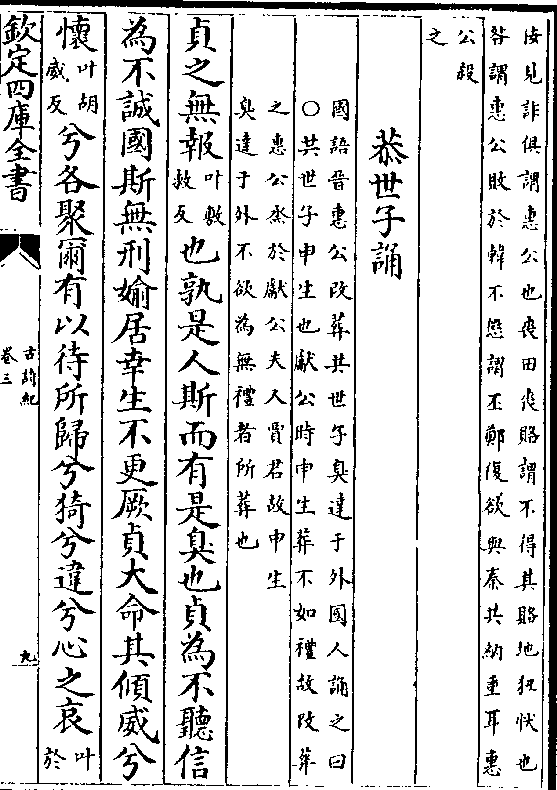 汝見詐俱謂惠公也喪田喪賂謂不得其賂地狃忕也
咎謂惠公敗於韓不懲謂丕鄭復欲與秦共納重耳惠
公殺
之
恭世子誦
國語晉惠公改葬共世子臭達于外國人誦之曰
○共世子申生也獻公時申生葬不如禮故改葬
之惠公烝於獻公夫人賈君故申生
臭達于外不欲為無禮者所葬也
貞之無報叶敷救反也孰是人斯而有是臭也貞為不聽信
為不誠國斯無刑媮居幸生不更厥貞大命其傾威兮
懷叶胡威反兮各聚爾有以待所歸兮猗兮違兮心之哀叶於
欽定四庫全書
古詩紀
卷三
九